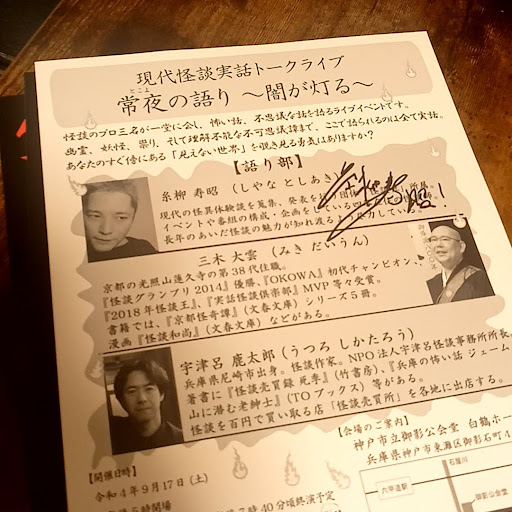 現代怪談実話トークライブ
とこよ
常夜の語り ～闇が灯る～
怪談のプロ三名が一堂に会し、怖い話、不思議な話を語るライブイベントです。
幽霊、妖怪、祟り、そして理解不能な不可思議譚まで、ここで語られるのは全て実話。
あなたのすぐ傍にある「見えない世界」を覗き見る勇気はありますか？
【語り部】
糸柳 寿昭 (しやな としあき)
現代の怪異体験談を蒐集、発表を
イベントや番組の構成・企画をしている
長年のあいだ怪談の魅力が知れ渡るよう
三木 大雲 (みき だいうん)
京都の光照山蓮久寺の第38代住職。
『怪談グランプリ2014』優勝、『OKOWA』初代チャンピオン、
『2018年怪談王』、『実話怪談倶楽部』MVP等々受賞。
書籍では、『京都怪奇譚』（文春文庫）シリーズ5冊。
漫画『怪談和尚』（文春文庫）などがある。
宇津呂 鹿太郎 (うつろ しかたろう)
兵庫県尼崎市出身。怪談作家。NPO法人宇津呂怪談事務所所長。
著書に『怪談売買録 死季』(竹書房)、『兵庫の怖い話 ジェームス
山に潜む老紳士』(TOブックス)等がある。
怪談を百円で買い取る店「怪談売買所」を各地に出店する。
【会場のご案内】
神戸市立御影公会堂 白鶴ホー
兵庫県神戸市東灘区御影石町4
【開催日時】
令和4年9月17日(土)
時開場
7時40分頃終演予定
石屋川
六甲道駅
御影公会堂